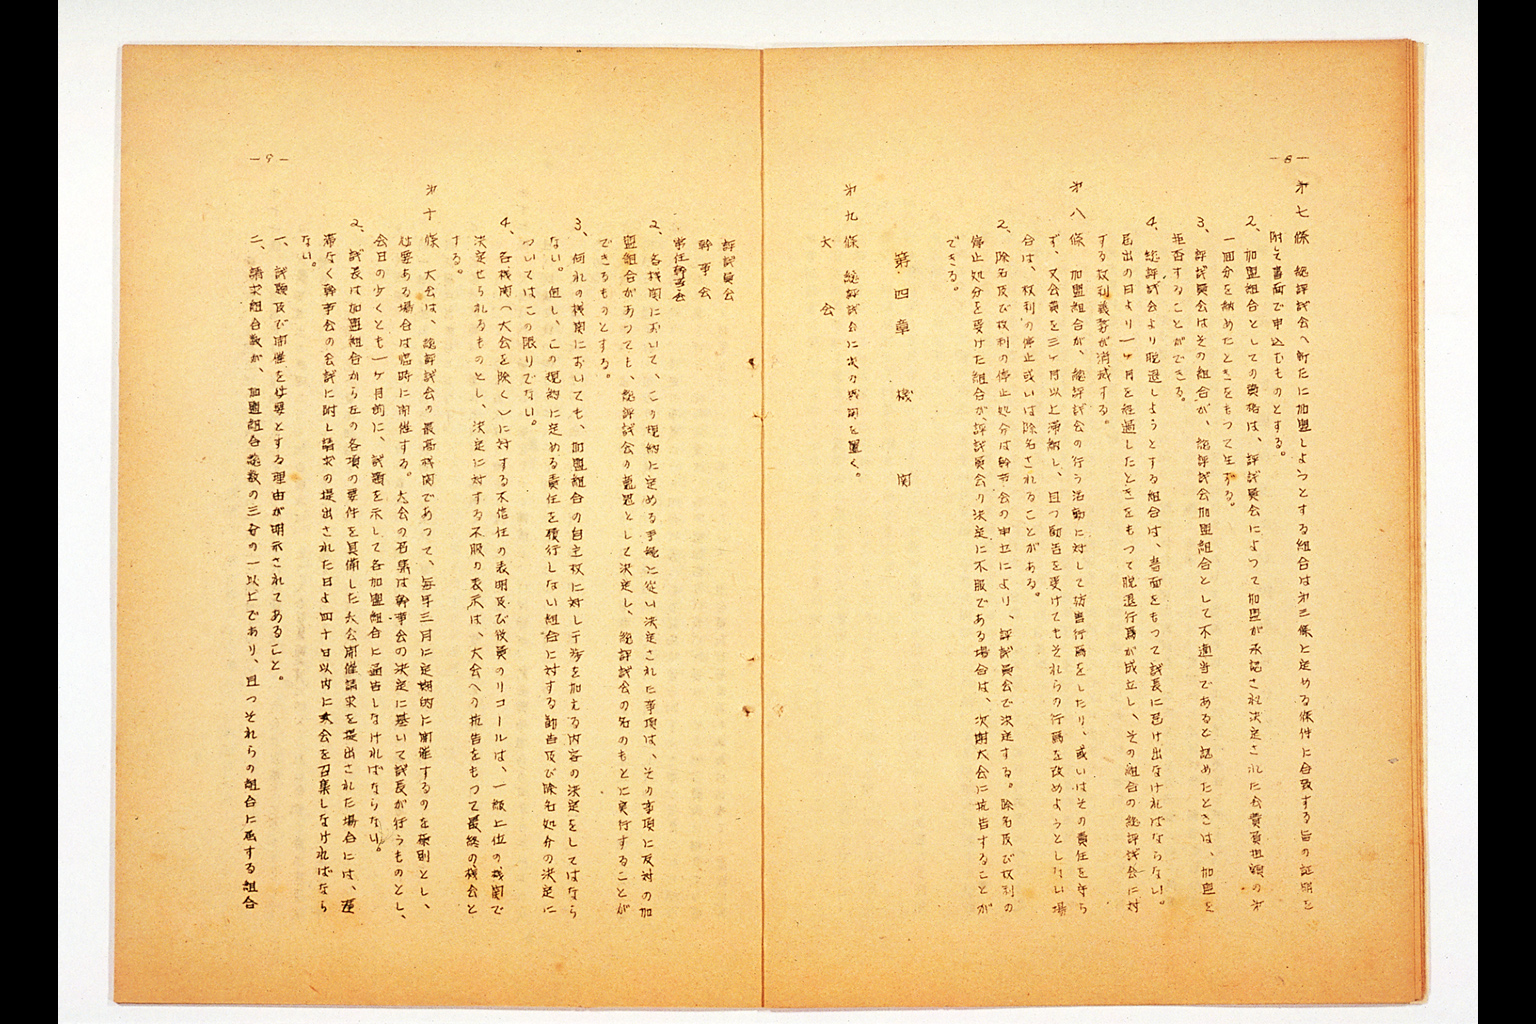 —8—
第七條 総評議会へ新たに加盟しようとする組合は第三條に定める條件に合致する旨の証明を
附した書面で申込むものとする。
2、加盟組合としての資格は、評議員会によつて加盟が承認され決定された会費負担額の第
一回分を納めたときをもつて生ずる。
3、評議員会はその組合が、総評議会加盟組合として不適当であると認めたときは、加盟を
拒否することができる。
4、総評議会より脱退しようとする組合は、書面をもつて議長に届け出なければならない。
届出の日より一ヶ月を経過したときをもつて脱退行為が成立し、その組合の総評議会に対
する权利義務が消滅する。
第八條 加盟組合が、総評議会の行う活動に対して妨害行為をしたり、或いはその責任を守ら
ず、又会費を三ヶ月以上滞納し、且つ勧告を受けてもそれらの行為を改めようとしない場
合は、权利の停止或いは除名されることがある。
2、除名及び权利の停止処分は幹事会の申立により、評議員会で決定する。除名及び权利の
停止処分を受けた組合が評議員会の決定に不服である場合は、次期大会に抗告することが
できる。
第四章 機関
第九條 総評議会に次の機関を置く。
大会
評議員会
幹事会
常任幹事会
2、各機関において、この規約に定める手続に従い決定された事項は、その事項に反対の加
盟組合があつても、総評議会の意思として決定し、総評議会の名のもとに実行することが
できるものとする。
3、何れの機関においても、加盟組合の自主权に対し干渉を加える内容の決定をしてはなら
ない。但し、この規約に定める責任を履行しない組合に対する勧告及び除名処分の決定に
ついてはこの限りでない。
4、各機関(大会を除く)に対する不信任の表明及び役員のリコールは、一級上位の機関で
決定せられるものとし、決定に対する不服の表示は、大会への抗告をもつて最終の機会と
する。
第十條 大会は、総評議会の最高機関であつて、毎年三月に定期的に開催するのを原則とし、
必要ある場合は臨時に開催する。大会の召集は幹事会の決定に基いて議長が行うものとし、
会日の少くとも一ヶ月前に、議題を示して各加盟組合に通告しなければならない。
2、議長は加盟組合から左の各項の要件を具備した大会開催請求を提出された場合には、遅
滞なく幹事会の会議に附し請求の提出された日よ四十日以内に大会を召集しなければなら
ない。
一、議題及び開催を必要とする理由が明示されてあること。
二、請求組合数が、加盟組合総数の三分の一以上であり、且つそれらの組合に属する組合
—9—